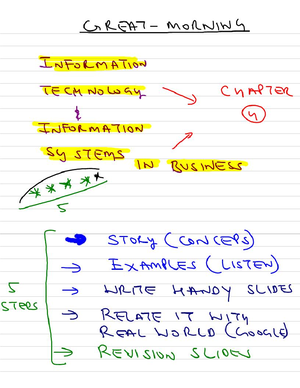 GREAT - MORNING
INFORMATION
TECHNOLOGY
&
INFORMATION
SYSTEMS IN BUSINESS
CHAPTER
4
5
5
STEPS
STORY (CONCEPS)
EXAMPLES (LISTEN)
WRITE HANDY SLIDES
RELATE IT WITH
REAL WORLD (GOOGLE)
REVISION SLIDES